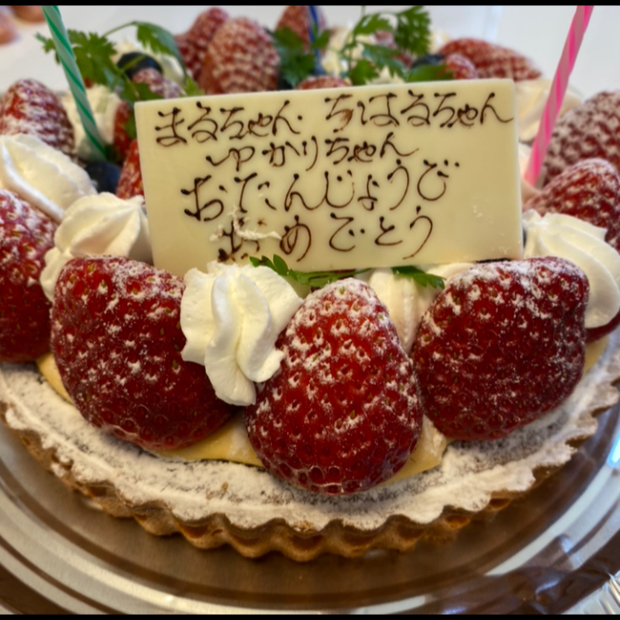 まるちゃん ちはるちゃん
ゆかりちゃん
おたんじょうび
おめでとう